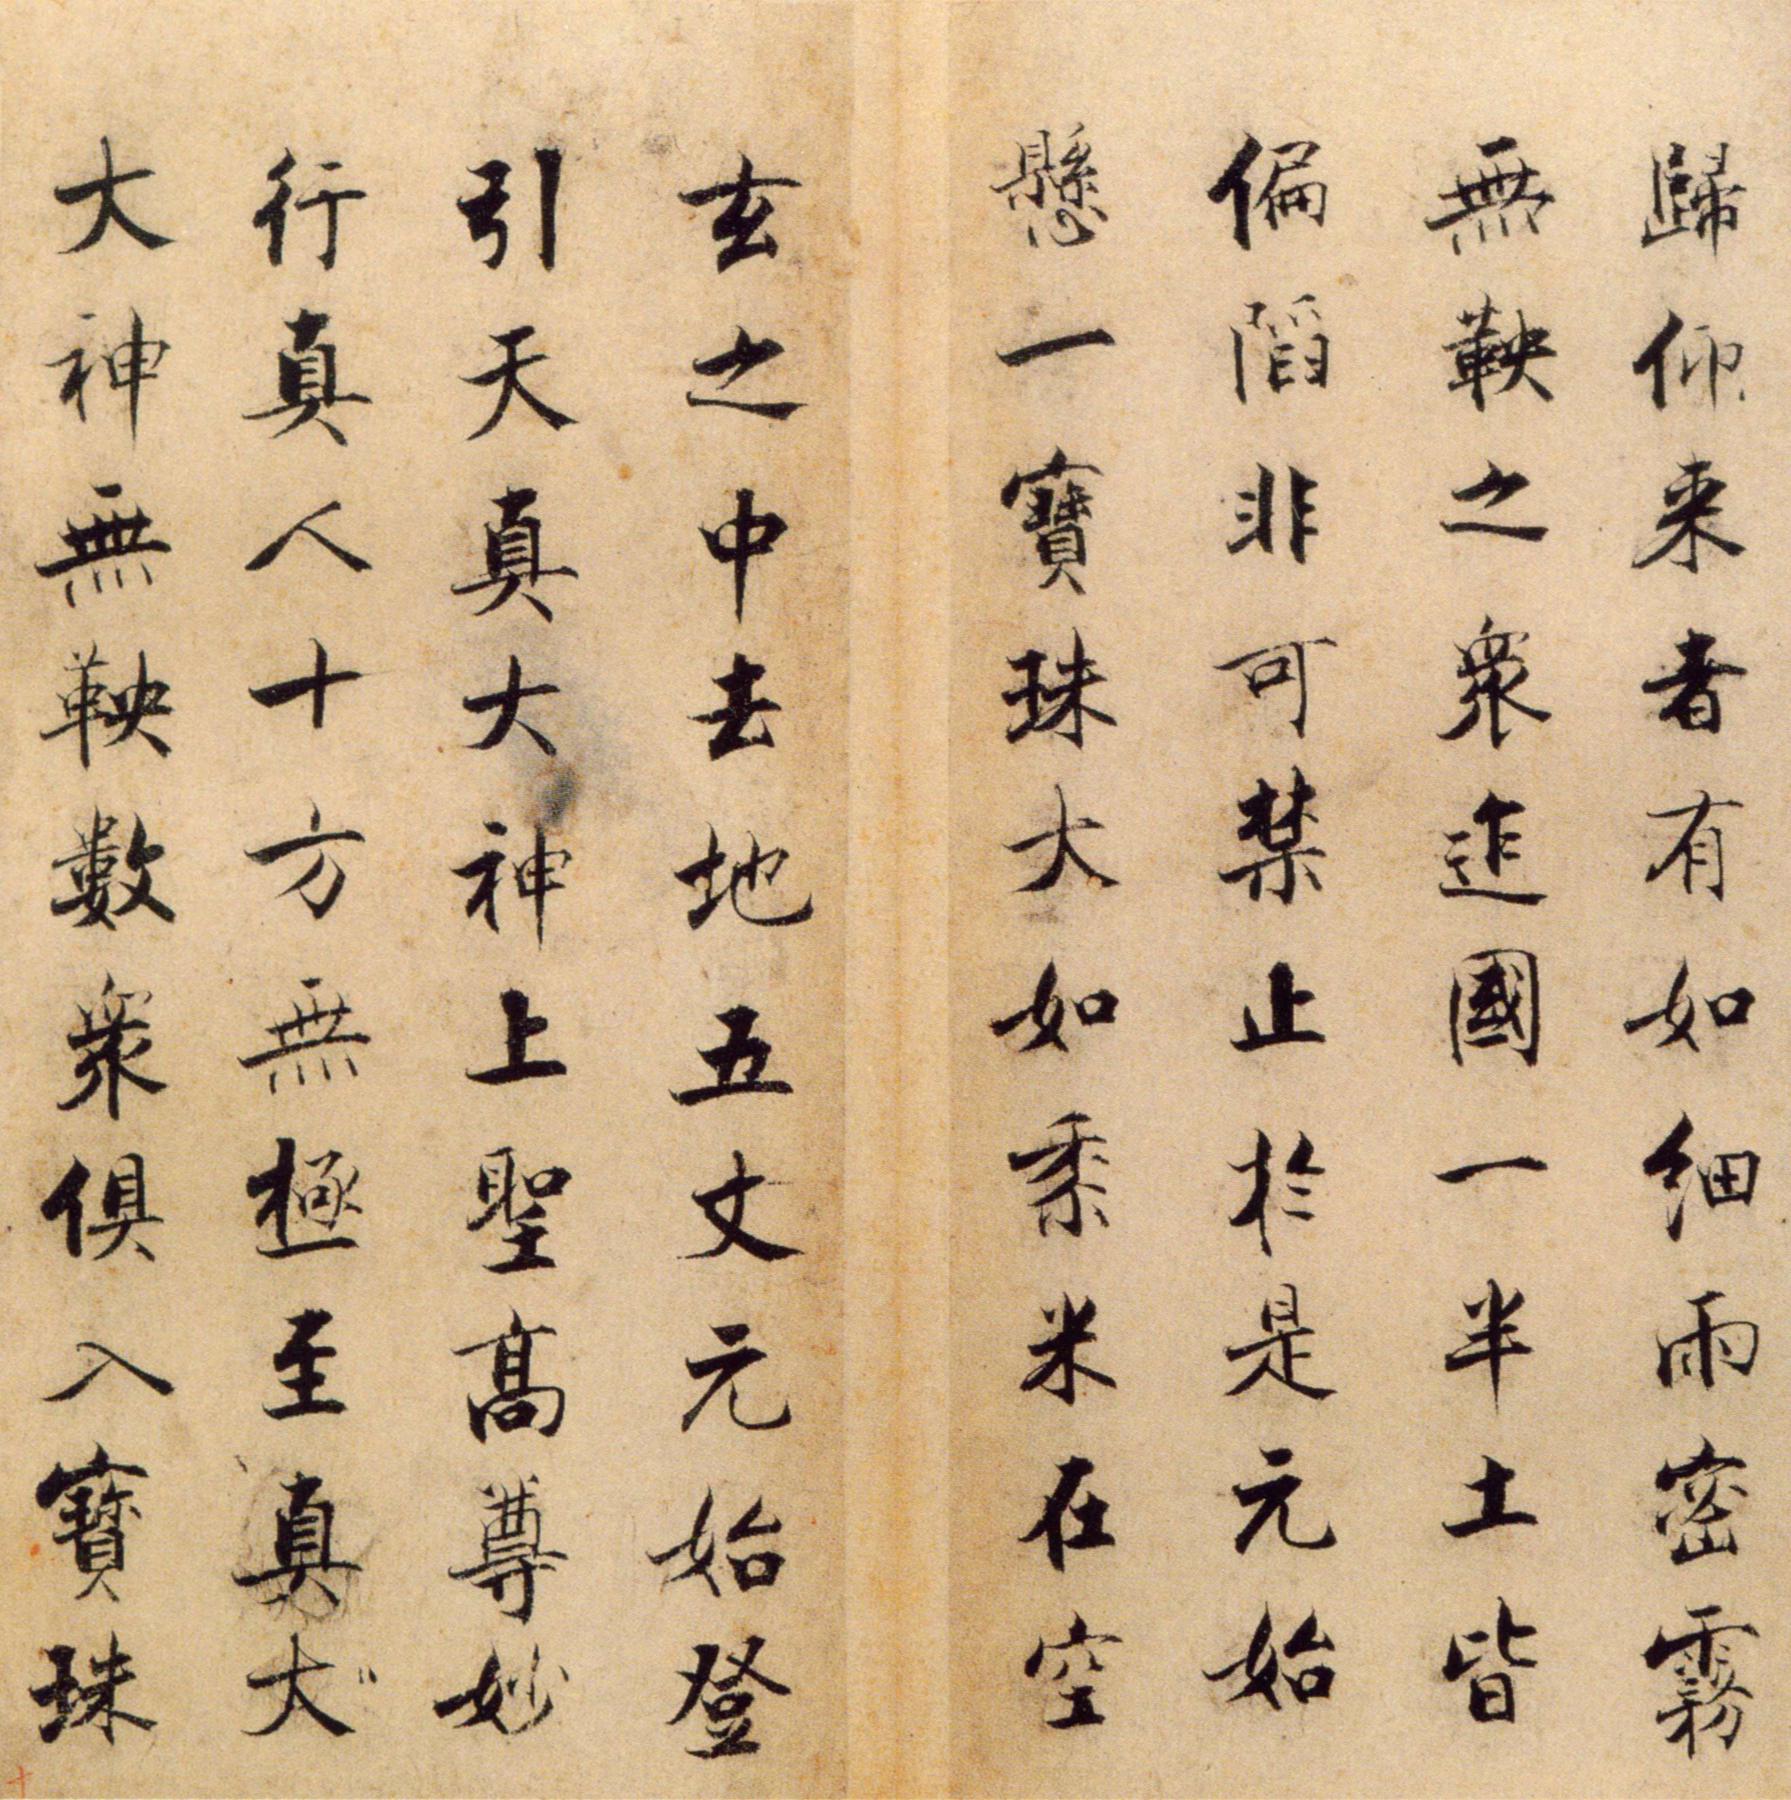 歸仰来者有如細雨密霧
無鞅之衆迮國一半土皆
偏陷非可禁止於是元始
懸一寶珠大如黍米在空
玄之中去地五丈元始登
引天真大神上聖高尊妙
行真人十方無極至真大
大神無鞅數衆俱入寶珠